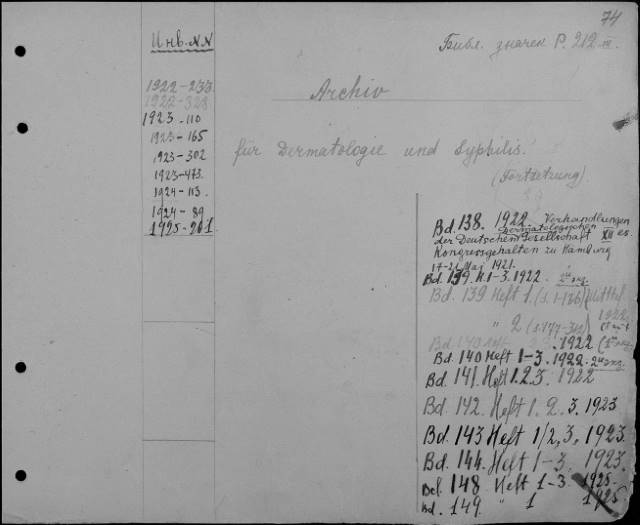 74
Инв. N.N
Библ. значек Р. 212 III.
1922-233
1922-328
1923-110
1923-165
1923-302
1923-473
1924-113
1924-89
1925-201
Archiv
für Dermatologie und Syphilis.
(Fortsetzung)
Bd. 138. 1922. Verhandlungen
der Deutschen Dermatologischen Gesellschaft XII es.
Kongress gehalten zu Hamburg
17-21 Mai 1921.
Bd. 139. H. 1-3. 1922. 2й экз.
Bd. 139 Heft 1. (S. 1-176)
" 2 (S. 177-312) 1922
Bd. 140 Heft 1922
Bd. 140 Heft 1-3. 1922. 2й экз.
Bd. 141. Heft 1. 2. 3. 1922
Bd. 142. Heft 1. 2. 3. 1923
Bd. 143 Heft 1/2, 3, 1923.
Bd. 144. Heft 1-3. 1923.
Bd. 148 Heft 1-3. 1925.
Bd. 149. " 1 1925